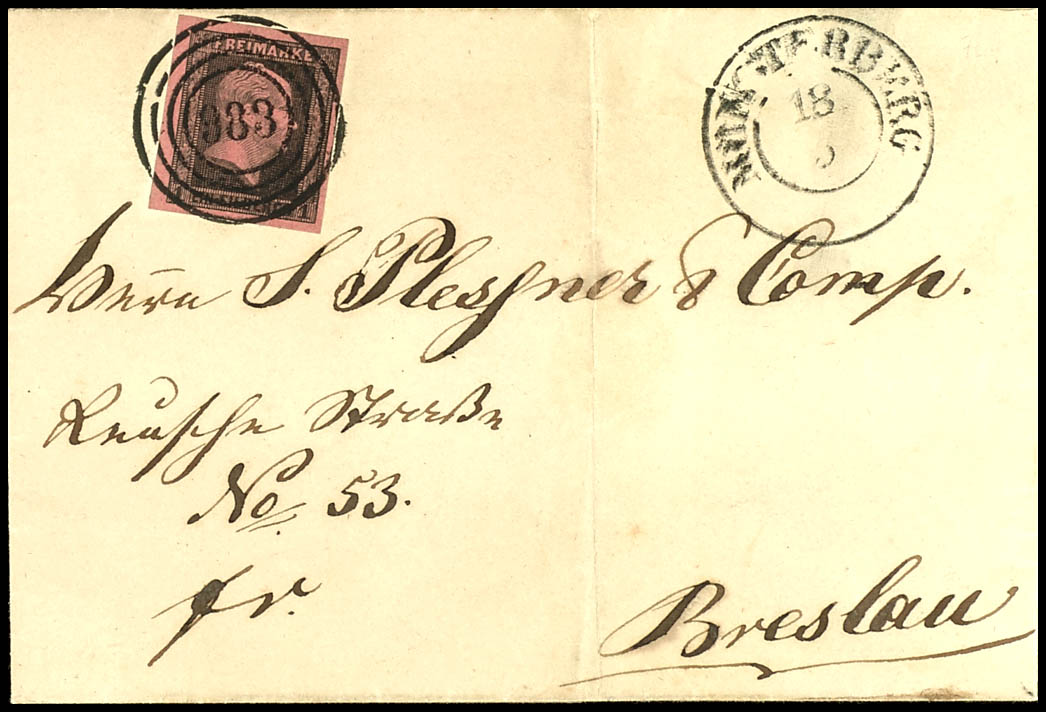 FREIMARKE
983
MÜNSTERBERG
18
5
Herrn S. Plessner & Comp.
Reusche Straße
No 53.
fr.
Breslau